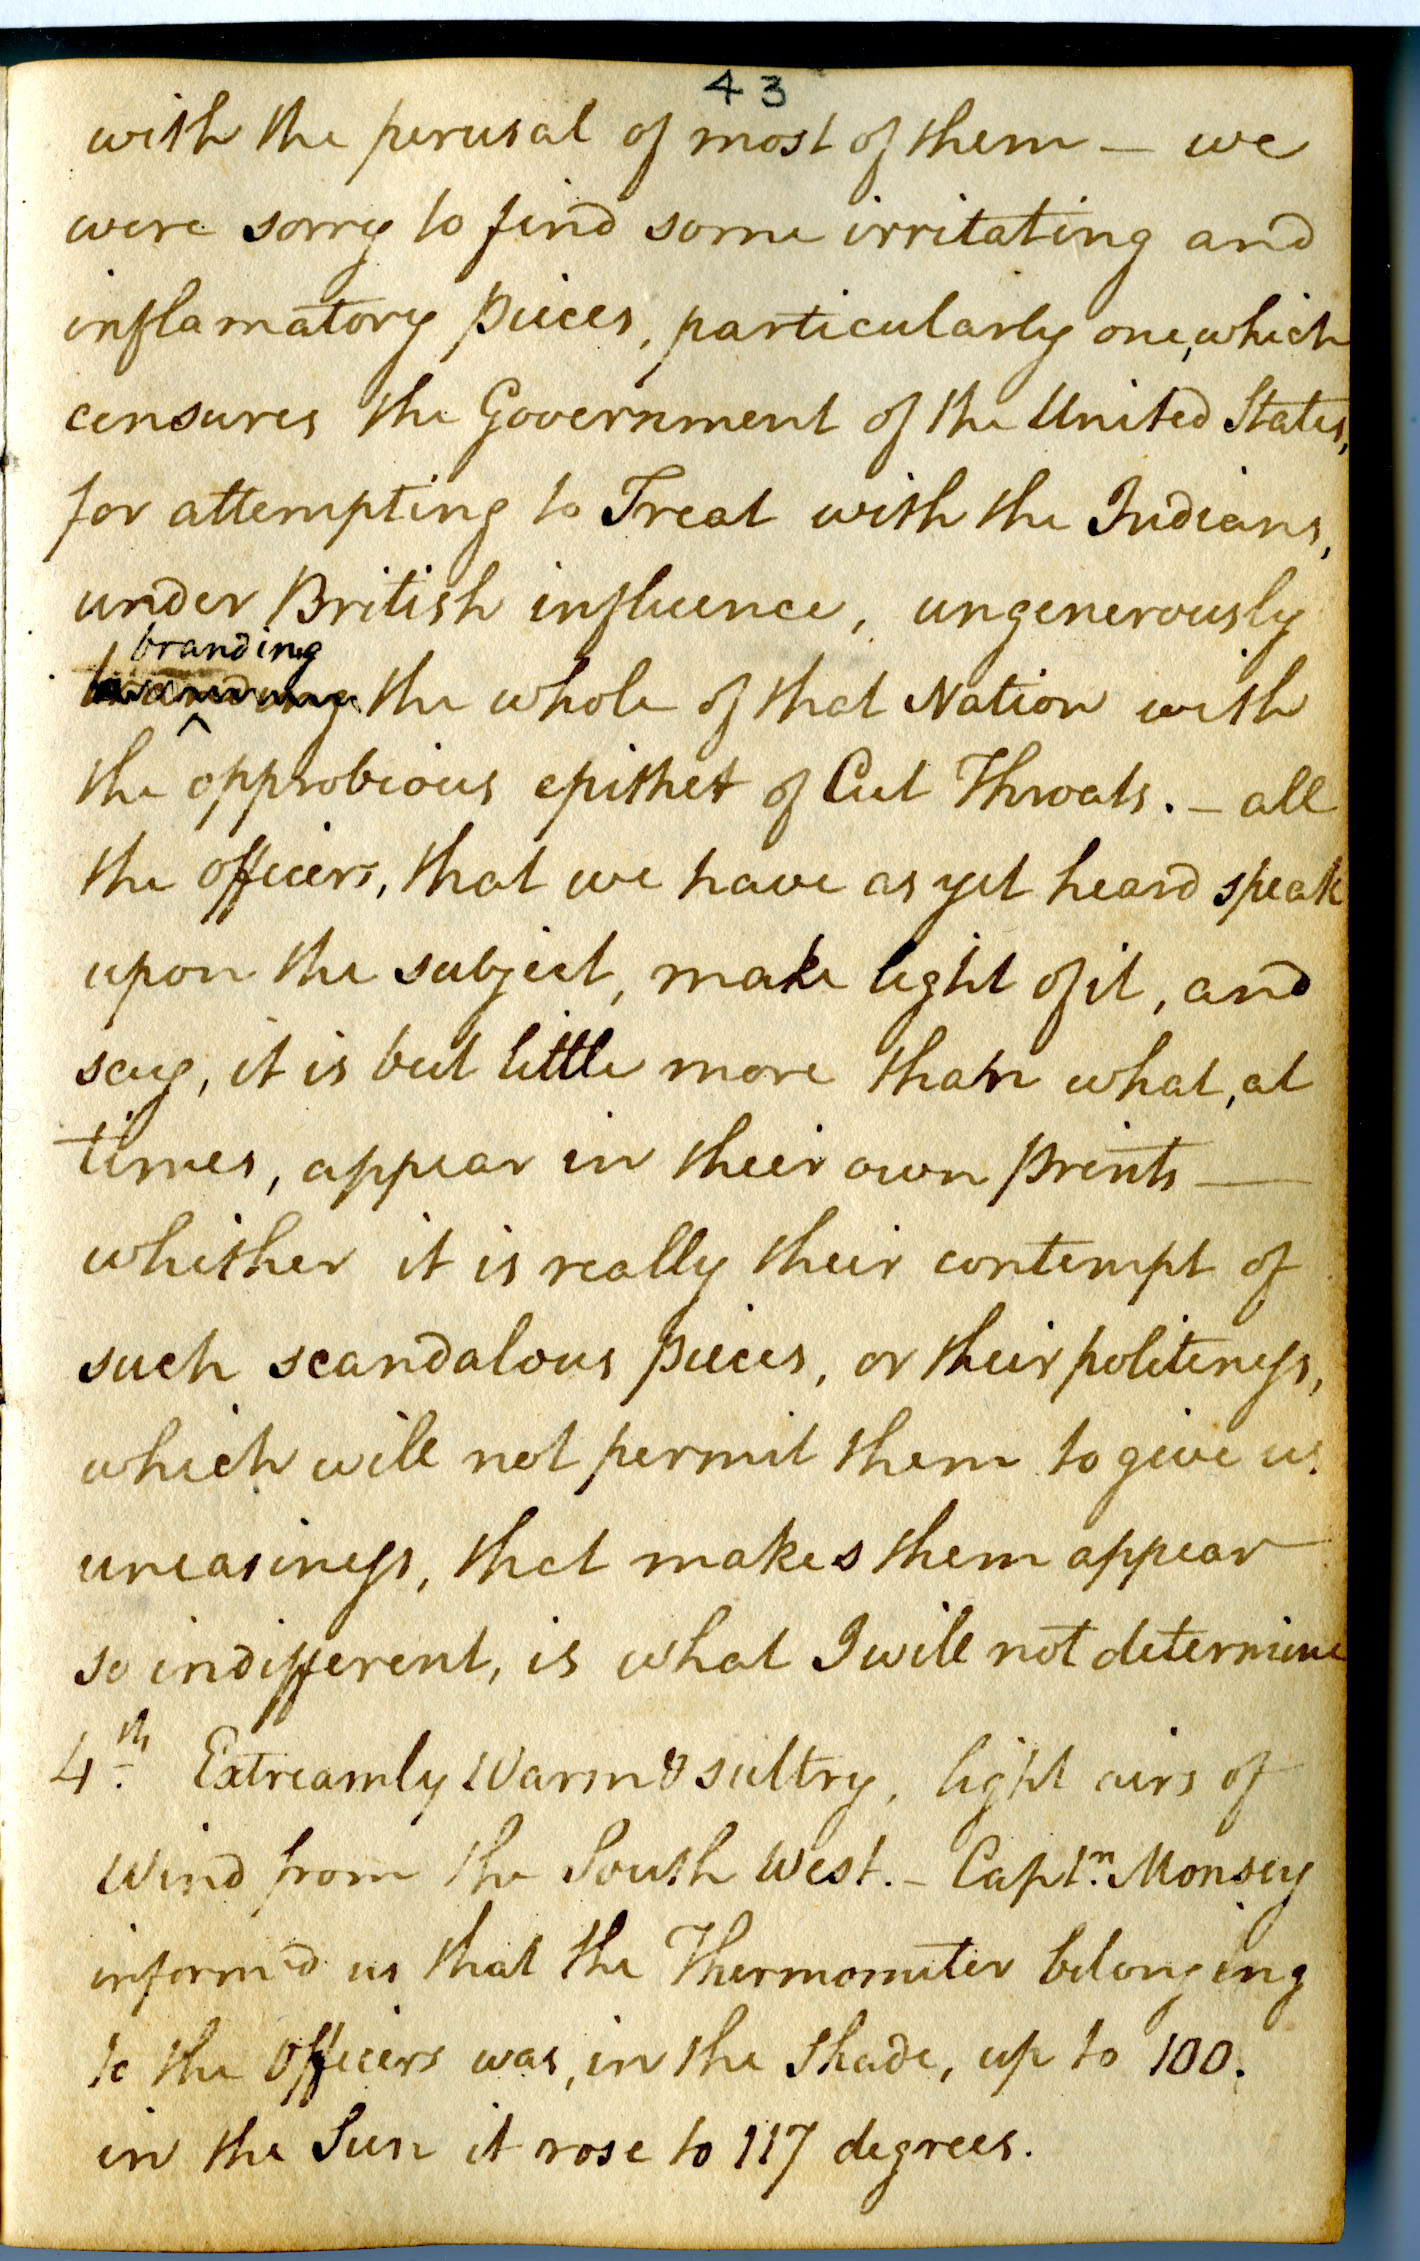 43
with the perusal of most of them – we
were sorry to find some irritating and
inflamatory pieces, particularly one, which
censures the Government of the United States,
for attempting to Treat with the Indians,
under British influence, ungenerously
branding
the whole of that Nation with
the opprobious epithet of Cut Throats. – all
the officers, that we have as yet heard speak
upon the subject, make light of it, and
say, it is but little more than what, at
times, appear in their own prints —
whither it is really their contempt of
such scandalous pieces, or their politeness,
which will not permit them to give us
uneasiness, that makes them appear
so indifferent, is what I will not determine
4th. Extreamly Warm & sultry, light airs of
Wind from the South West. – Captn. Monsey
inform'd us that the Thermometer belonging
to the Officers was, in the Shade, up to 100.
in the Sun it rose to 117 degrees.